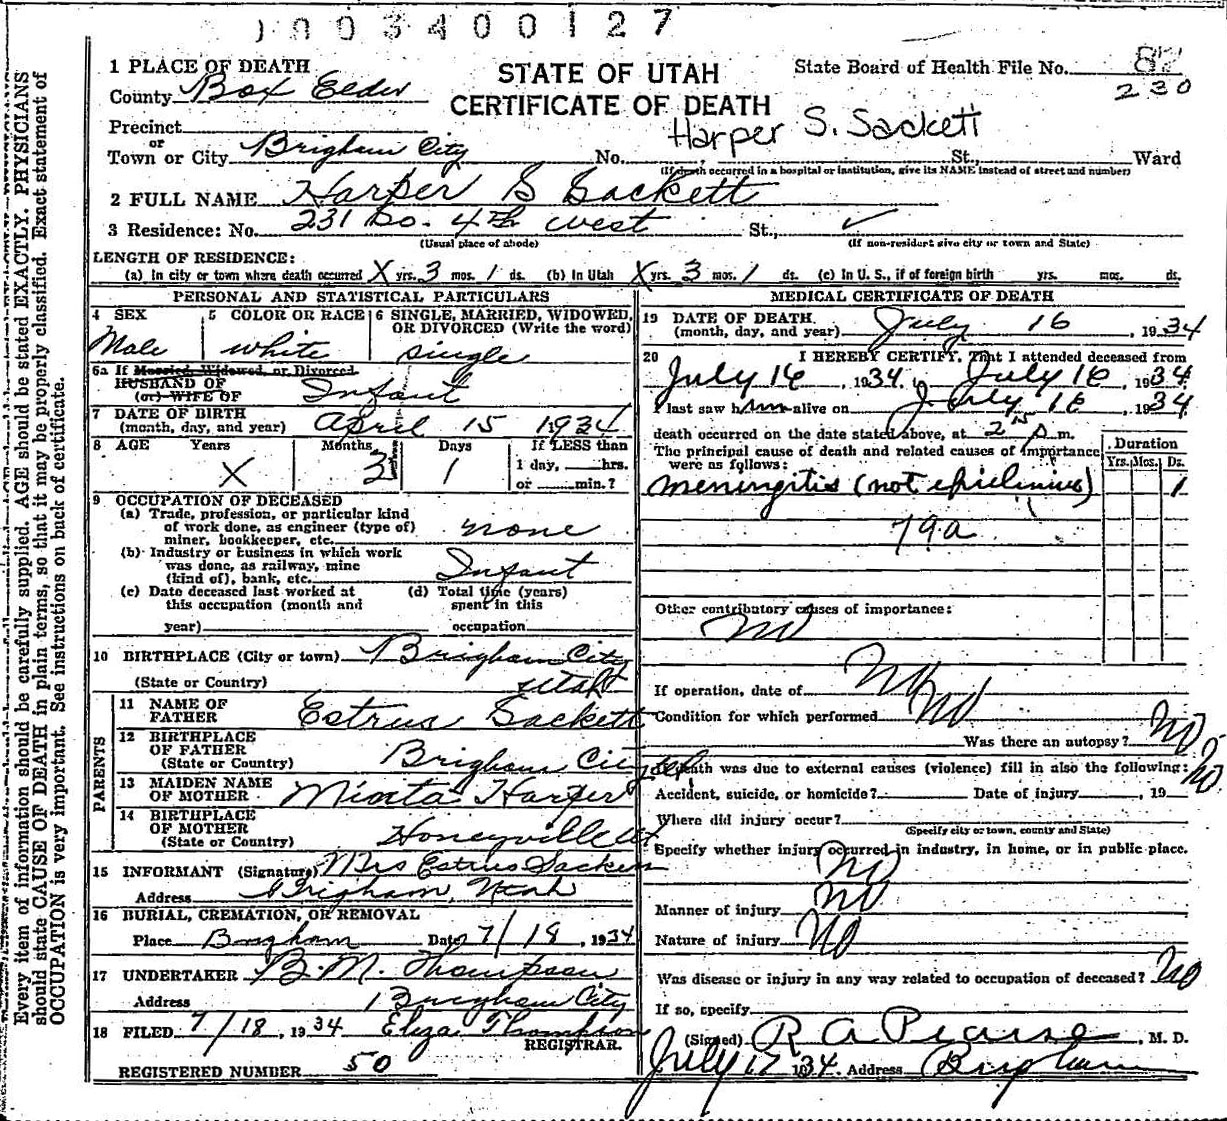 1003400127
1 PLACE OF DEATH
STATE OF UTAH
CERTIFICATE OF DEATH
State Board of Health File No. 82
230
County Box Elder
Precinct
or
Town or City Brigham City No. , St., Ward
Harper S. Sackett
(If death occurred in a hospital or institution, give its NAME instead of street and number)
2 FULL NAME Harper S Sackett
3 Residence: No. 231 So. 4th West St., ✓
(Usual place of abode) (If non-resident give city or town and State)
LENGTH OF RESIDENCE:
(a) In city or town where death occurred X yrs. 3 mos. 1 ds. (b) In Utah X yrs. 3 mos. 1 ds. (c) In U. S., if of foreign birth yrs. mos. ds.
PERSONAL AND STATISTICAL PARTICULARS
4 SEX
Male
5 COLOR OR RACE
white
6 SINGLE, MARRIED, WIDOWED,
OR DIVORCED (Write the word)
single
6a If Married, Widowed, or Divorced
HUSBAND OF
(or) WIFE OF Infant
7 DATE OF BIRTH
(month, day, and year) April 15 1934
8 AGE Years Months Days If LESS than
X 3 1 1 day, hrs.
or min.?
9 OCCUPATION OF DECEASED
(a) Trade, profession, or particular kind
of work done, as engineer (type of)
miner, bookkeeper, etc. none
(b) Industry or business in which work
was done, as railway, mine
(kind of), bank, etc. Infant
(c) Date deceased last worked at
this occupation (month and
year)
(d) Total time (years)
spent in this
occupation
10 BIRTHPLACE (City or town) Brigham City
(State or Country) Utah
PARENTS
11 NAME OF
FATHER Estrus Sackett
12 BIRTHPLACE
OF FATHER
(State or Country) Brigham City Utah
13 MAIDEN NAME
OF MOTHER Minta Harper
14 BIRTHPLACE
OF MOTHER
(State or Country) Honeyville Ut
15 INFORMANT (Signature) Mrs Estrus Sackett
Address Brigham, Utah
16 BURIAL, CREMATION, OR REMOVAL
Place Brigham Date 7/18, 1934
17 UNDERTAKER B. M. Thompson
Address Brigham City
18 FILED 7/18, 1934 Eliza Thompson
REGISTRAR.
REGISTERED NUMBER 50
MEDICAL CERTIFICATE OF DEATH
19 DATE OF DEATH
(month, day, and year) July 16, 1934
20 I HEREBY CERTIFY, That I attended deceased from
July 16, 1934, July 16, 1934
I last saw him alive on July 16, 1934
death occurred on the date stated above, at 2 15 p m.
The principal cause of death and related causes of importance
were as follows:
Duration
Yrs. Mos. Ds.
Meningitis (not epidemic) 1
79a
Other contributory causes of importance:
No
If operation, date of No
Condition for which performed No
Was there an autopsy? No
If death was due to external causes (violence) fill in also the following: No
Accident, suicide, or homicide? Date of injury , 19
Where did injury occur?
(Specify city or town, county and State)
Specify whether injury occurred in industry, in home, or in public place.
No
Manner of injury No
Nature of injury No
Was disease or injury in any way related to occupation of deceased? No
If so, specify
(Signed) R A Pearse, M. D.
July 17 1934. Address Brigham
Every item of information should be carefully supplied. AGE should be stated EXACTLY. PHYSICIANS
should state CAUSE OF DEATH in plain terms, so that it may be properly classified. Exact statement of
OCCUPATION is very important. See instructions on back of certificate.